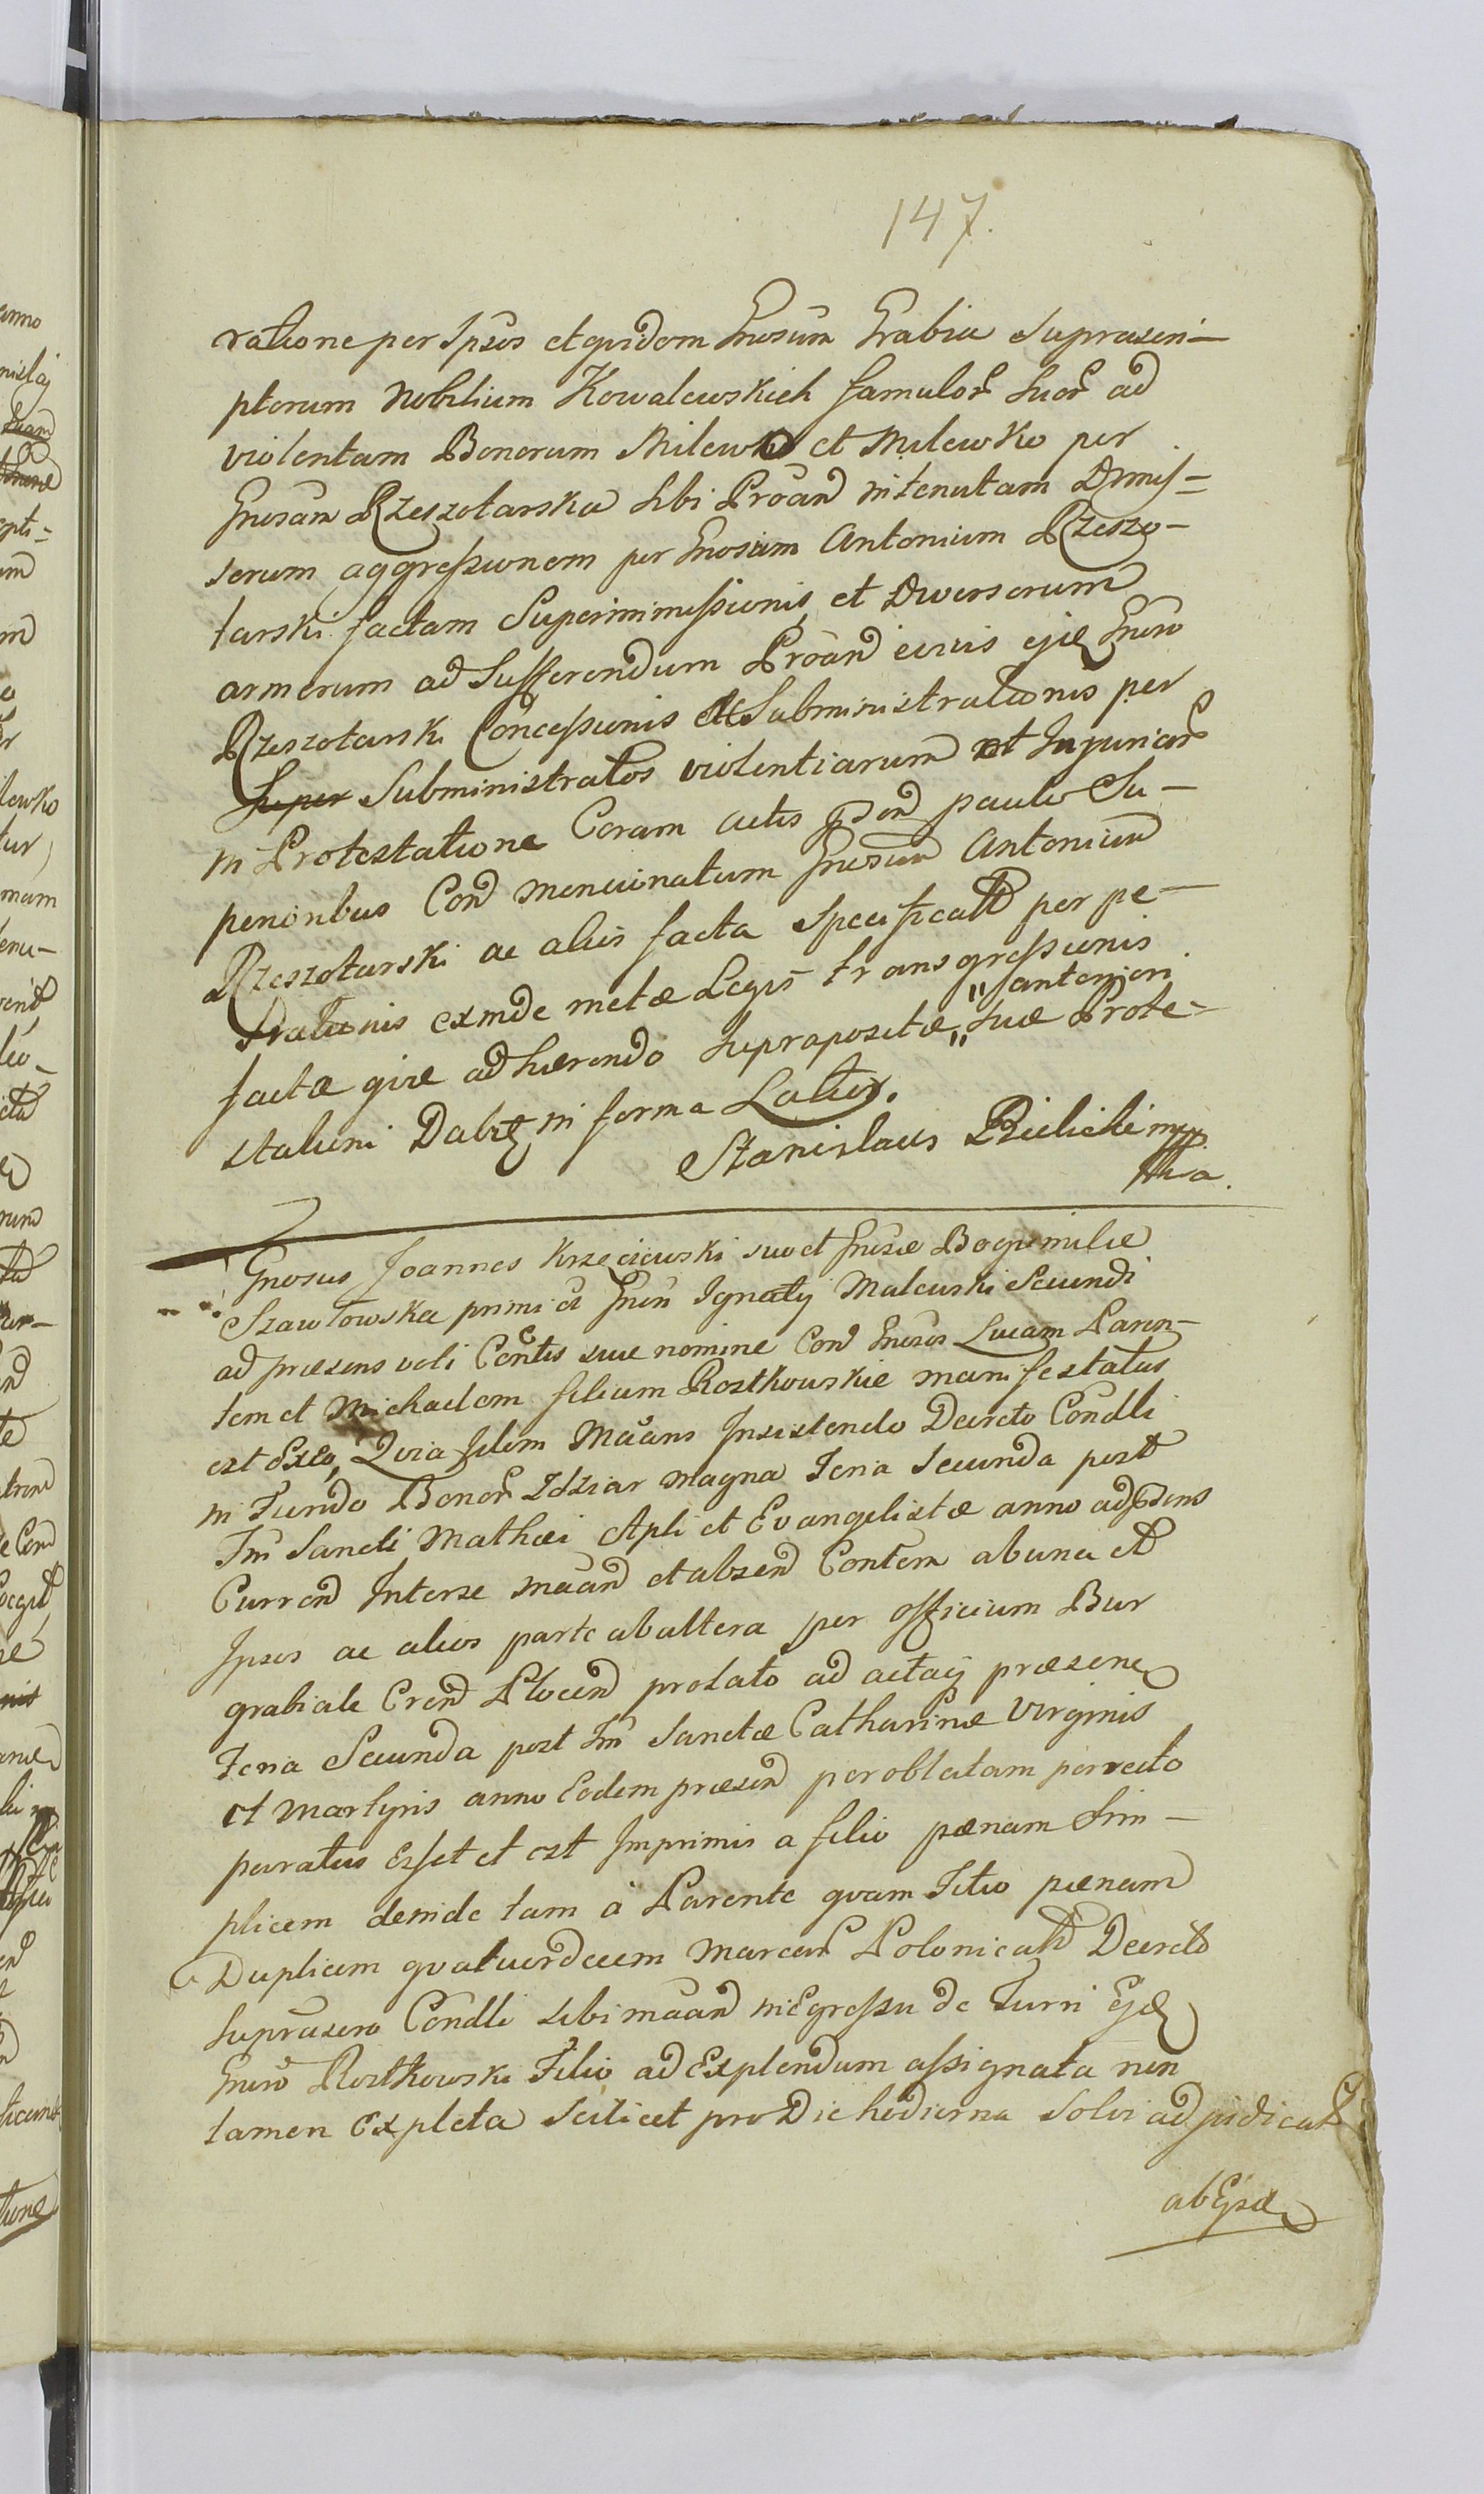 147.
ratione per Ipsos et quidem Gnosum Grabia suprascri-
ptorum Nobilium Kowalewskich famulor suor ad
violentam Bonorum Milewo et Milewko per
Gnosam Rzeszotarska sibi Proand intentutam Dimis-
serum aggressionem per Gnosum Antonium Rzeszo-
tarski factam Superimmissionis et Diversorum
armorum ad Sufferendum Proand eius Gnoso
Rzeszotarski Concessionis et Subministrationis per
Subministratos violentiarum et Injuriar
in Protestatione Coram actis paulo Su-
perioribus Cond mencionatum Gnosum Antonium
Rzeszotarski ac alios facta Specificatt per pe-
trationis exinde metæ Legis transgressionis
factæ adhærendo supraposite "suæ "anteriori Prote-
stationi Dabitq in forma Latior.
Stanislaus Bielicki mpp
Gnosus Joannes Krzeciewski suo et Gnosæ Bogumilæ
Szawlowska primi et Gnosi Ignatij Malewski Secundi
ad præsens voti Contis suæ nomine Cond Gnosos Lucam Paren-
tem et Michaelem filium Rostkowskie manifestatus
est Exeo, Quia Idem Maans Insistendo Decreto Condli
in Fundo Bonor Zdziar magna Feria Secunda post
Fm Sancti Mathæi Apli et Evangelistæ anno ad præsens
Currend Interse maand et absend Contem ab una et
Ipsos ac alios parte ab altera per officium Bur
grabiale Crend Plocend prolato ad acta præsene
Feria Secunda post Fm Sanctæ Catharinæ Virginis
et Martyris anno Eodem præsend per oblatam porrecto
paratus Esset et est Imprimis a filio pænam Sim-
plicem deinde tam á Parente qvam Filio pænam
Duplicem qvatuordecem Marcar Polonicatt Decreto
suprascro Condli sibi maand in Egressu de Turri
Gnoso Rostkowski Filio ad Explendum assignata non
tamen Expleta Scilicet pro Die hodierna Solvi adjudicatt